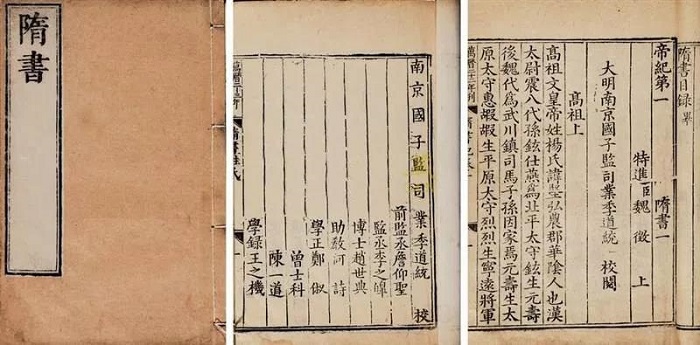 隋書
南京國子監司業季道統 校
前監丞詹仰聖
監丞李之皥
博士趙世典
助敎何詩
學正鄭俶
曾士科
陳一道
學錄王之機
隋書姓氏
隋書目録 畢
帝紀第一 隋書一
特進臣魏徵 上
大明南京國子監司業季道統 校閱
高祖上
高祖文皇帝姓楊氏諱堅弘農郡華陰人也漢
太尉震八代孫鉉仕燕爲北平太守鉉生元壽
後魏代爲武川鎮司馬子孫因家焉元壽生太
原太守惠嘏嘏生平原太守烈烈生寧遠將軍